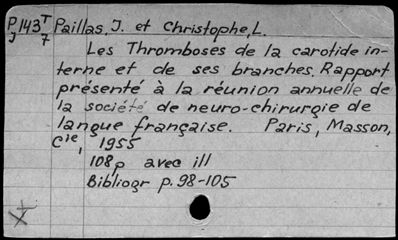 P,143T Paillas, J. et Christophe, L.
J 7
Les Thromboses de la carotide in-
terne et de ses branches. Rapport
présenté à la réunion annuelle de
la société de neuro-chirurgie de
langue française. Paris, Masson,
Cie, 1955
108p avec ill
Bibliogr p. 98-105
X